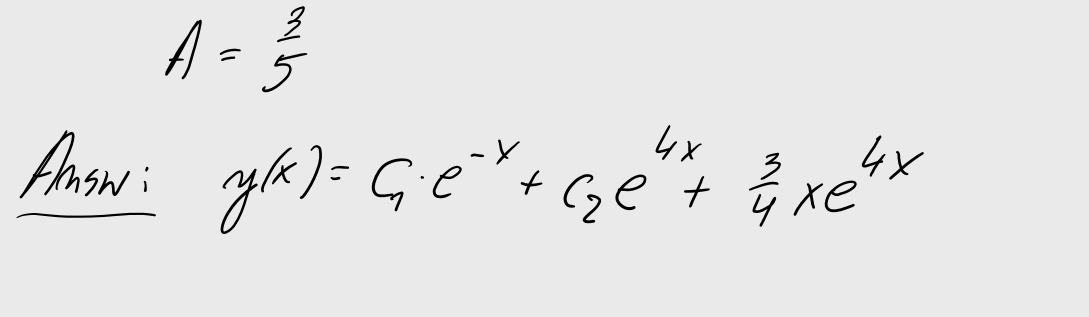 A = 3/5
Answ: y(x) = C₁·e^{-x} + C₂e^{4x} + 3/4 xe^{4x}